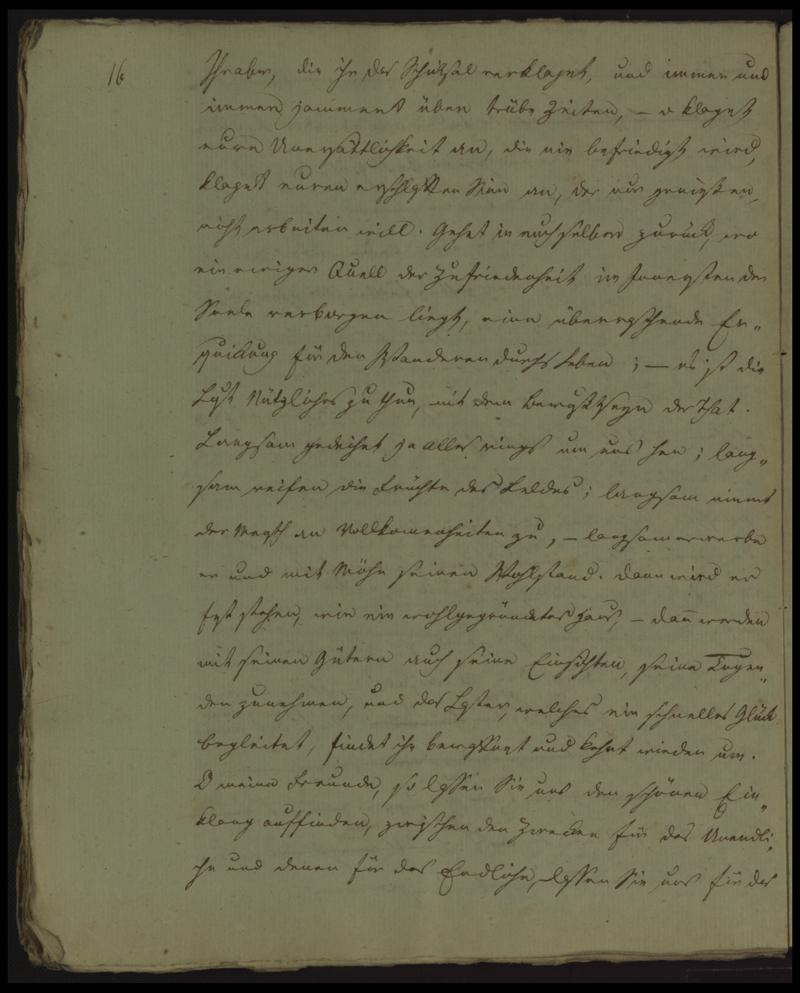 16
Ihr aber, die ihr das Schiksal verklaget, und immer und
immer jammert über trübe Zeiten, – o klaget
eure Unersättlichkeit an, die nie befriedigt wird,
klaget euren erschlafften Sinn an, der nur genießen,
nicht arbeiten will. Gehet in euch selber zurück, wo
ein ewiger Quell der Zufriedenheit im Innersten der
Seele verborgen liegt, eine überraschende Er„
quickung für den Wanderer durchs Leben; – es ist die
Lust Nützliches zu thun, mit dem Bewußtseyn der That.
Langsam gedeihet ja alles rings um uns her; lang„
sam reifen die Früchte des Feldes; langsam nimmt
der Mensch an Vollkomenheiten zu, – langsam erwerbe
er und mit Mühe seinen Wohlstand. Dann wird er
fest stehen, wie ein wohlgegründetes Haus, – dañ werden
mit seinen Gütern auch seine Einsichten, seine Tugen„
den zunehmen, und das Laster, welches ein schnelles Glück
begleitet, findet ihn bewaffnet und kehrt wieder um.
O meine Freunde, so lassen Sie uns den schönen Ein„
klang auffinden, zwischen den Zwecken für das Unendli„
che und denen für das Endliche, lassen Sie uns für das